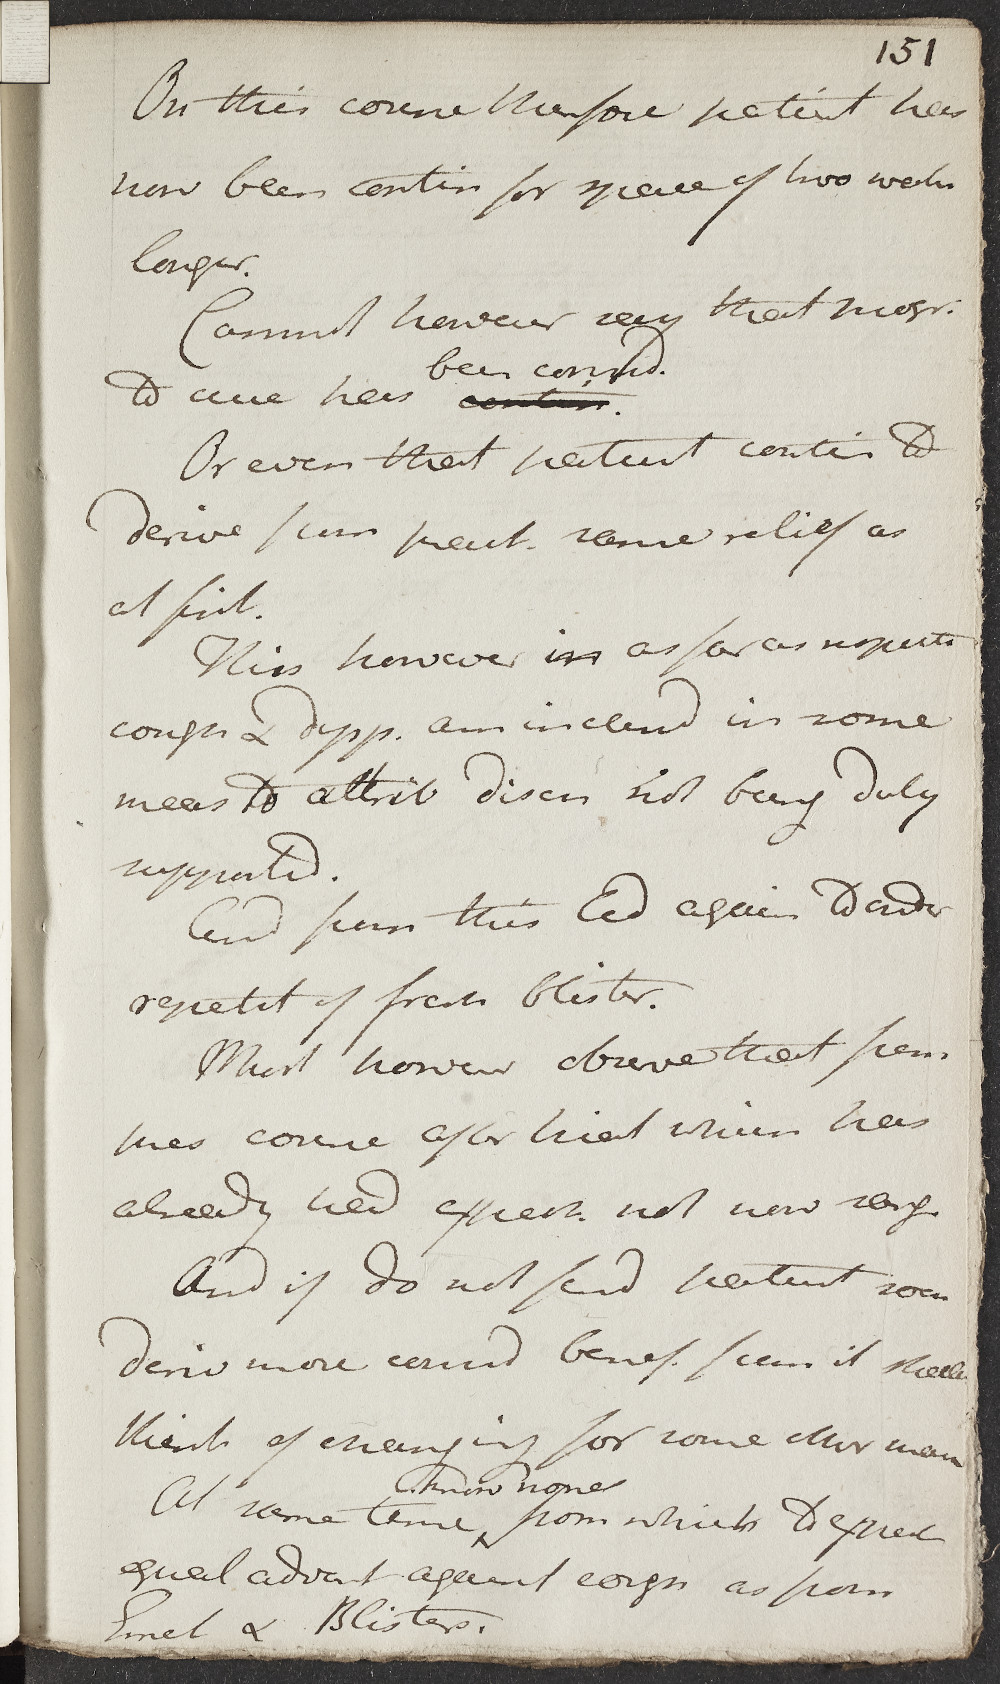 151
On this course therefore patient has
now been contin for space of two weeks
longer.
Cannot however say that progr.
to cure has been consid.
contin.
Or even that patient contin to
derive from pract. same relief as
at first.
This however in as far as respects
cough & dysp. am inclend in some
meas to attrib discn not being duly
supported.
And from this led again to order
repetit of fresh blister.
Must however observe that from
pres course after trial which has
already had expect. not now sang
And if do not find patient soon
deriv more consid benef. from it shall
think of changing for some other mean
At same time know none from which to expect
equal advant against cough as from
Emet & Blisters.